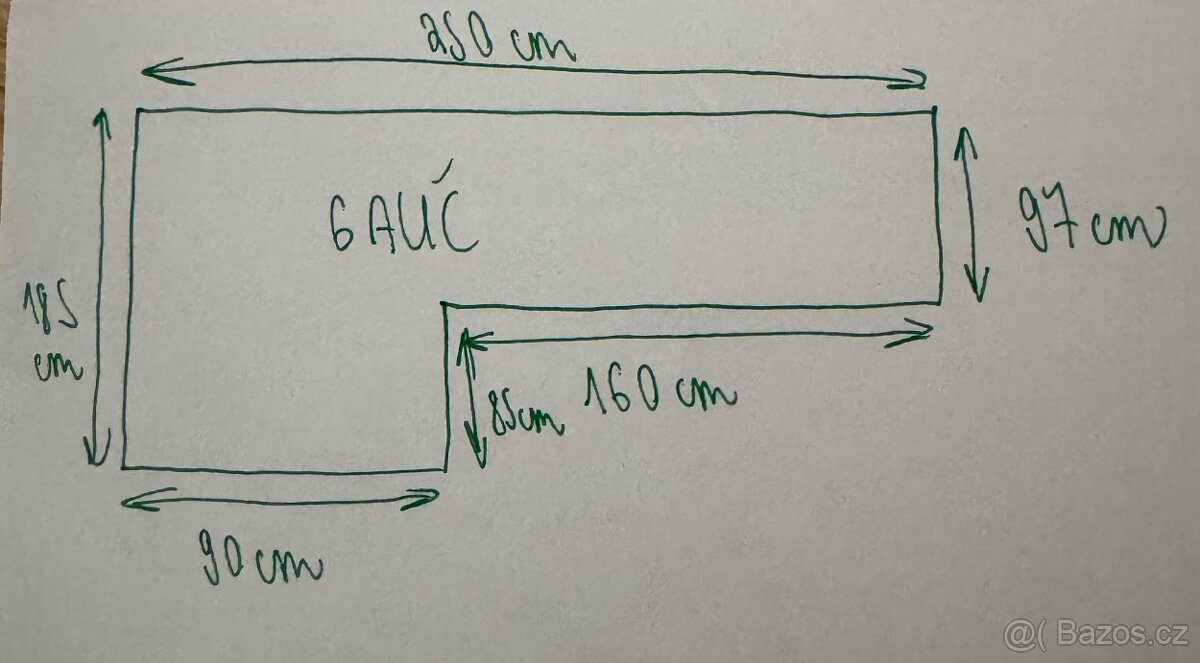 250 cm
GAUČ
97 cm
185
cm
160 cm
85cm
90 cm
@( Bazos.cz